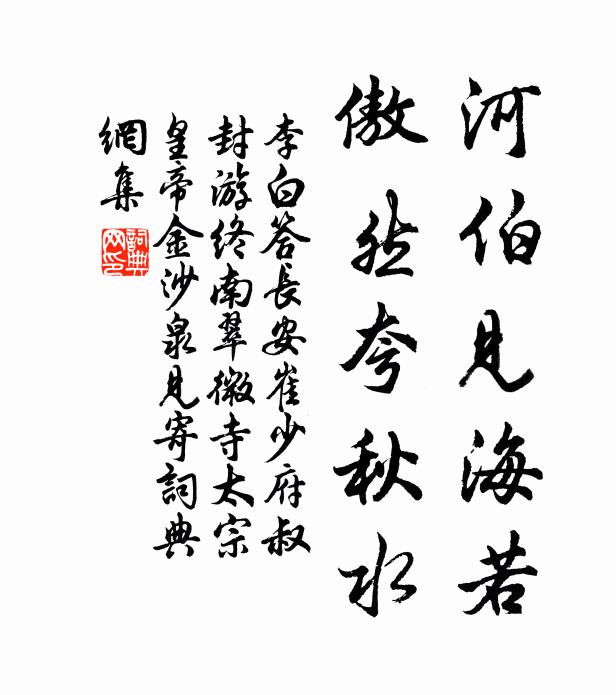 河伯見海若
傲然夸秋水
李白答長安崔少府叔
封游終南翠微寺太宗
皇帝金沙泉見寄詞典
網集
詞典
网印